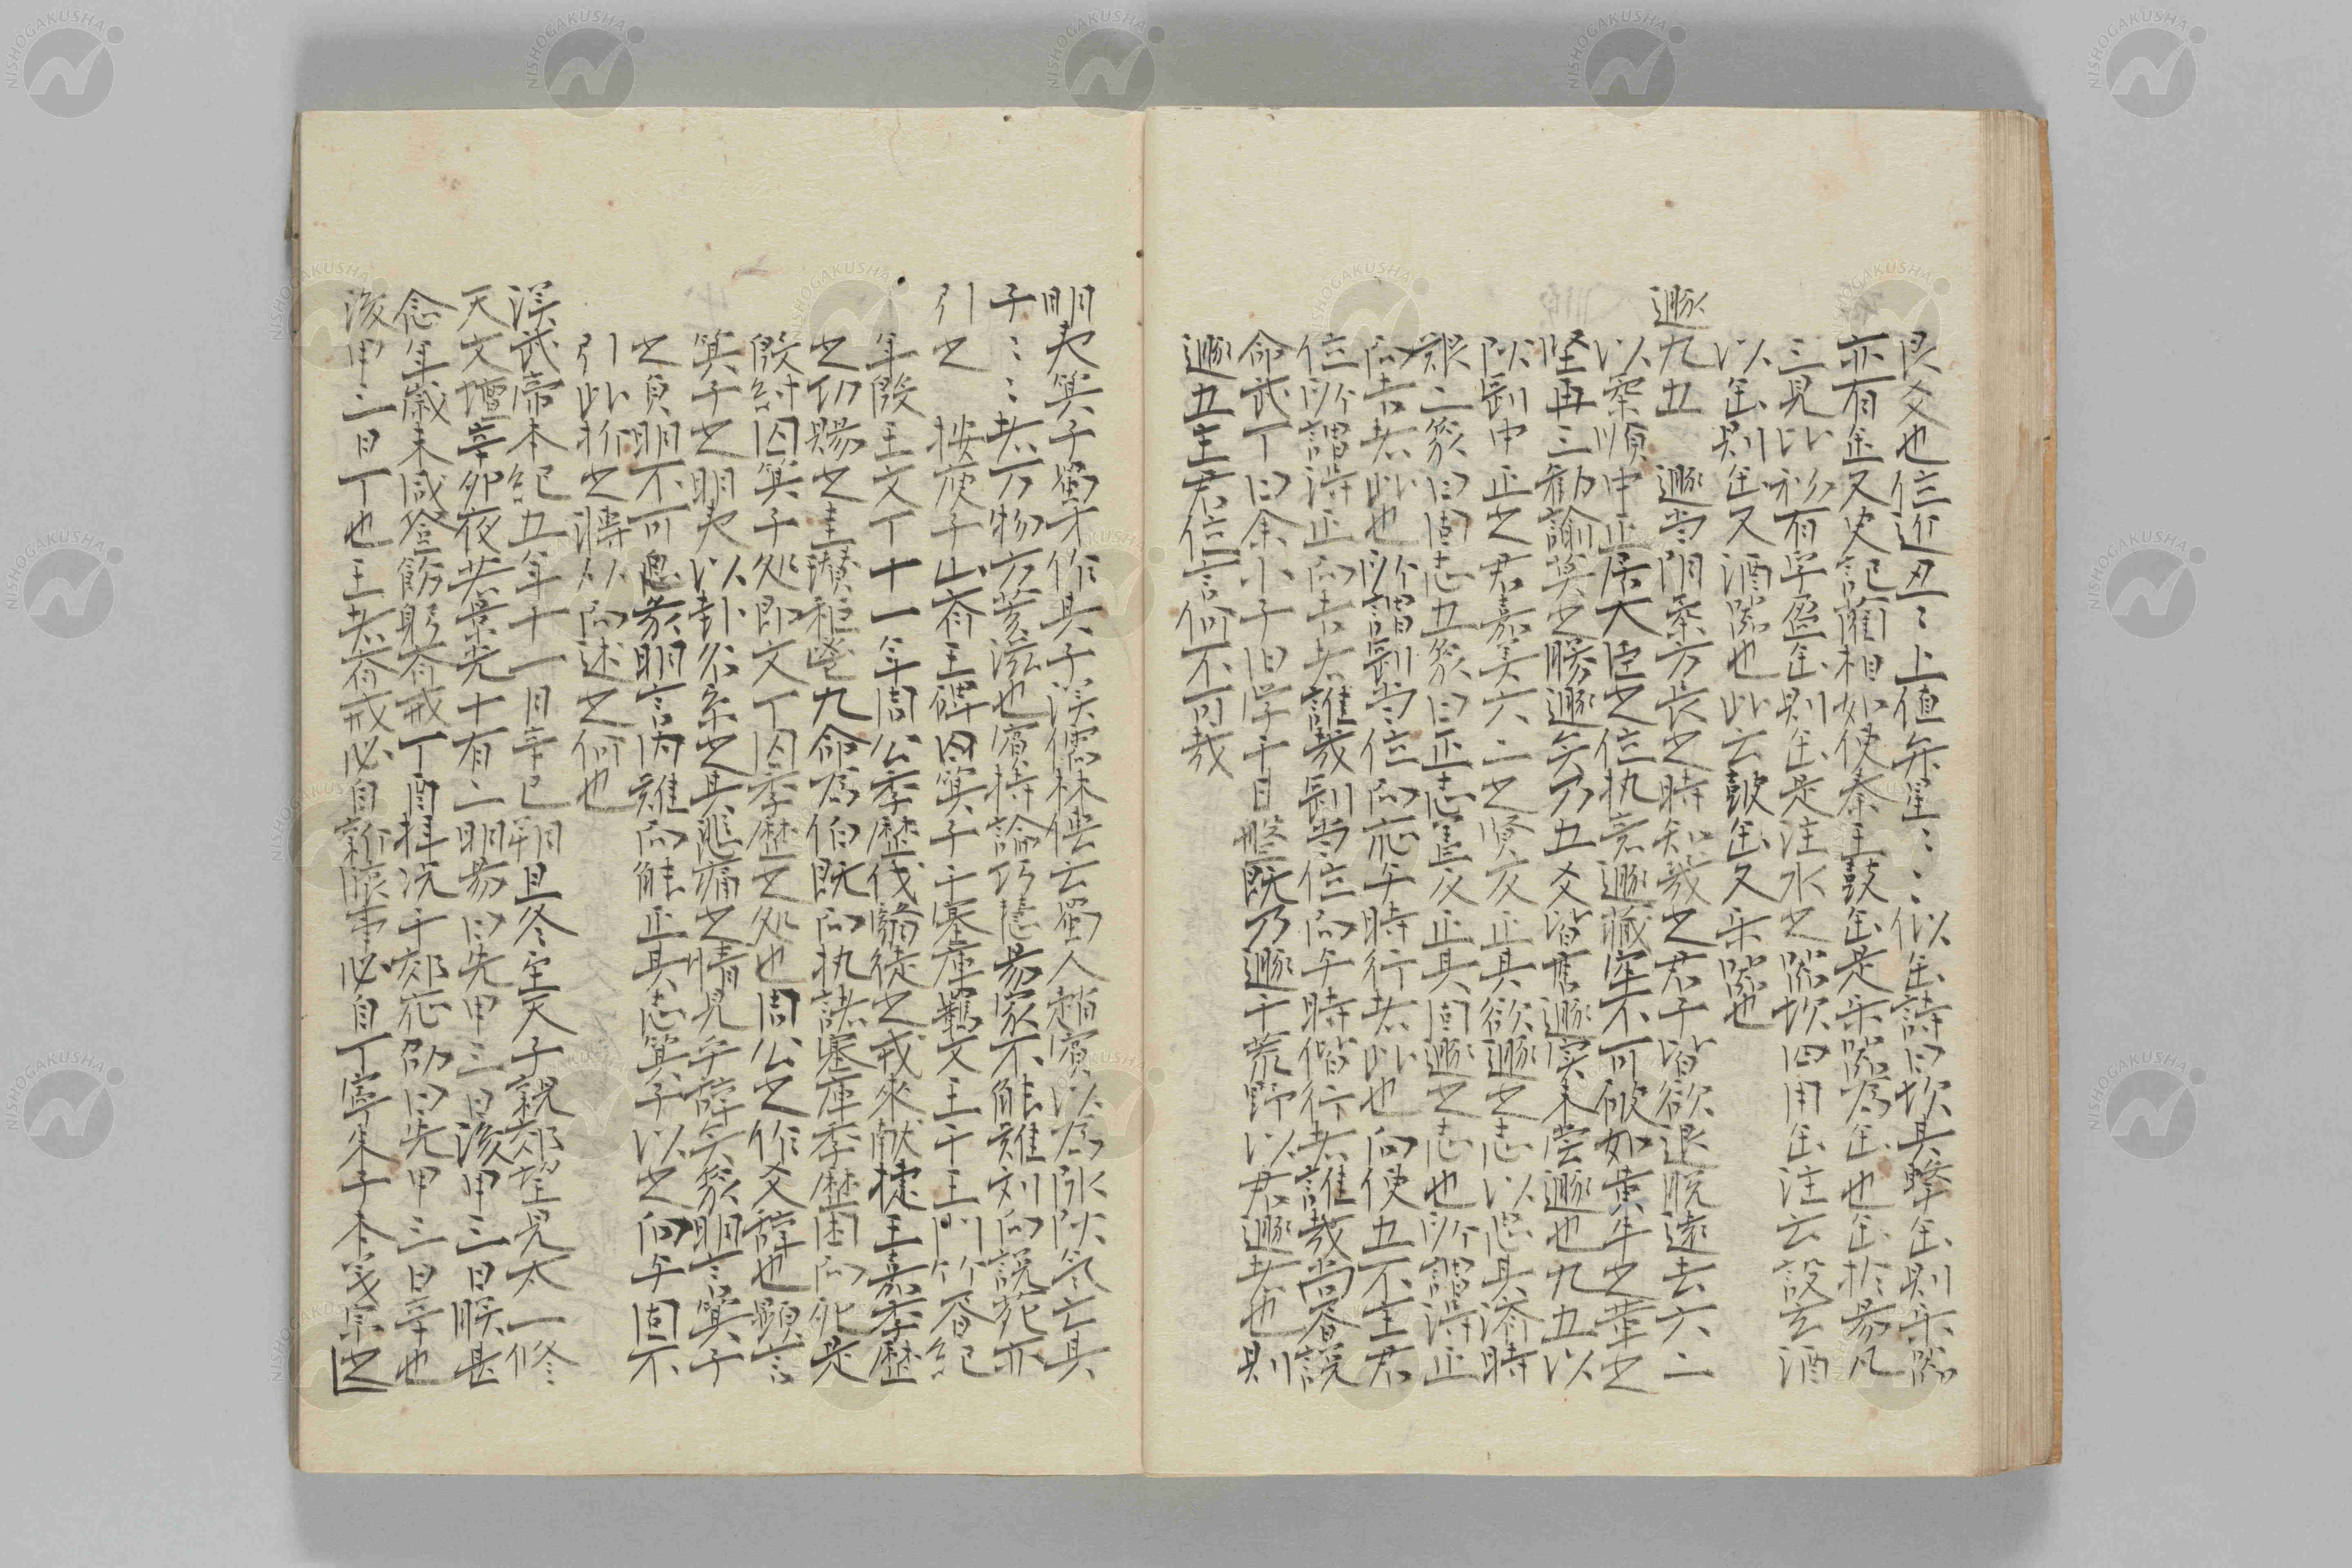 艮爻也位近丑〻上值弁星〻〻似缶詩曰坎其擊缶則乐器
亦有缶又史記藺相如使秦王鼓缶是乐器為缶也缶於易凡
三見比初有孚盈缶則缶是注水之器坎四用缶注云設玄酒
以缶則缶又酒器也此云鼓缶又乐器也
遯九五 遯当阴柔方长之時知幾之君子皆欲退脱遠去六二
以柔順中正居大臣之位执意遯藏牢不可破如黄牛之革之
坚再三勧諭莫之勝遯矣乃五爻皆言遯実未嘗遯也九五以
阳剛中正之君嘉美六二之贤友正其欲遯之志以恐其济時
艰二象曰固志五象曰正志言友正其固遯之志也所謂得正
而吉者此也所謂剛当位而应乎時行者此也向使五不主君
位所謂得正而吉者誰哉剛当位而乎時偕行者誰哉尚書説
命武丁曰余小子旧学于甘盤既乃遯于荒野以君遯者也則
遯五主君位言何不可哉
明夷箕子蜀才作其子漢儒林传云蜀人趙賓以為阴阳氣亡其
子〻〻者万物方荄滋也賓持論巧慧易家不能難刘向説苑亦
引之 按庾子山齐王碑囚箕子于塞庫羈文王于玉門竹書紀
年殷王文丁十一年周公季歷伐翳徒之戎來献捷王嘉季歷
之功賜之圭瓚秬鬯九命為伯既而执諸塞庫季歷困而死是
殷紂囚箕子処即文丁囚季歷之処也周公之作爻辞也顕言
箕子之明夷以卦名系之其悲痛之情見乎辞矣象明言箕子
之貞明不可息於明言内難而能正其志箕子以之向乎固不
引此析之將从而述之何也
漢武帝本紀五年十一月辛巳朔旦冬至天子親郊望見太一修
天文壇辛卯夜若景光十有二明易曰先甲三日後甲三日朕甚
念年歲未咸登飭躬齐戒丁酉拜况于郊应劭曰先甲三日辛也
後甲三日丁也王者齐戒必自新臨事必自丁寧朱子本义宗之